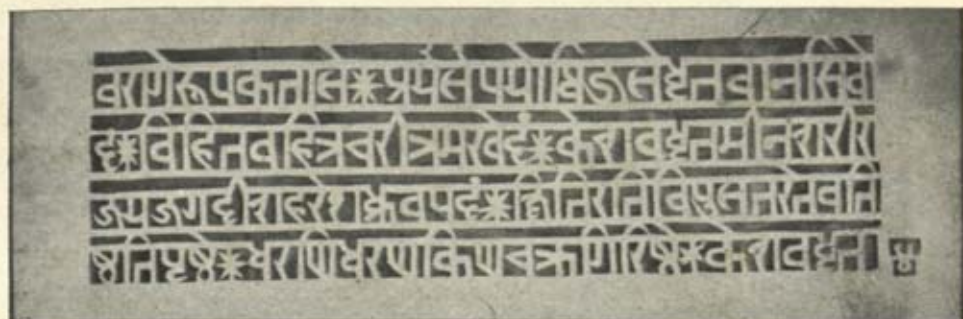 वरणरूपकताले * प्रलयपयोधिजले धृतवानसि वे
दं * विहितवहित्रचरित्रमखेदं * केशव धृतमीनशरीर
जय जगदीश हरे ध्रुवपदं * क्षितिरतिविपुलतरे तव ति
ष्ठति पृष्ठे * धरणिधरणकिणचक्रगरिष्ठे * केशव धृत